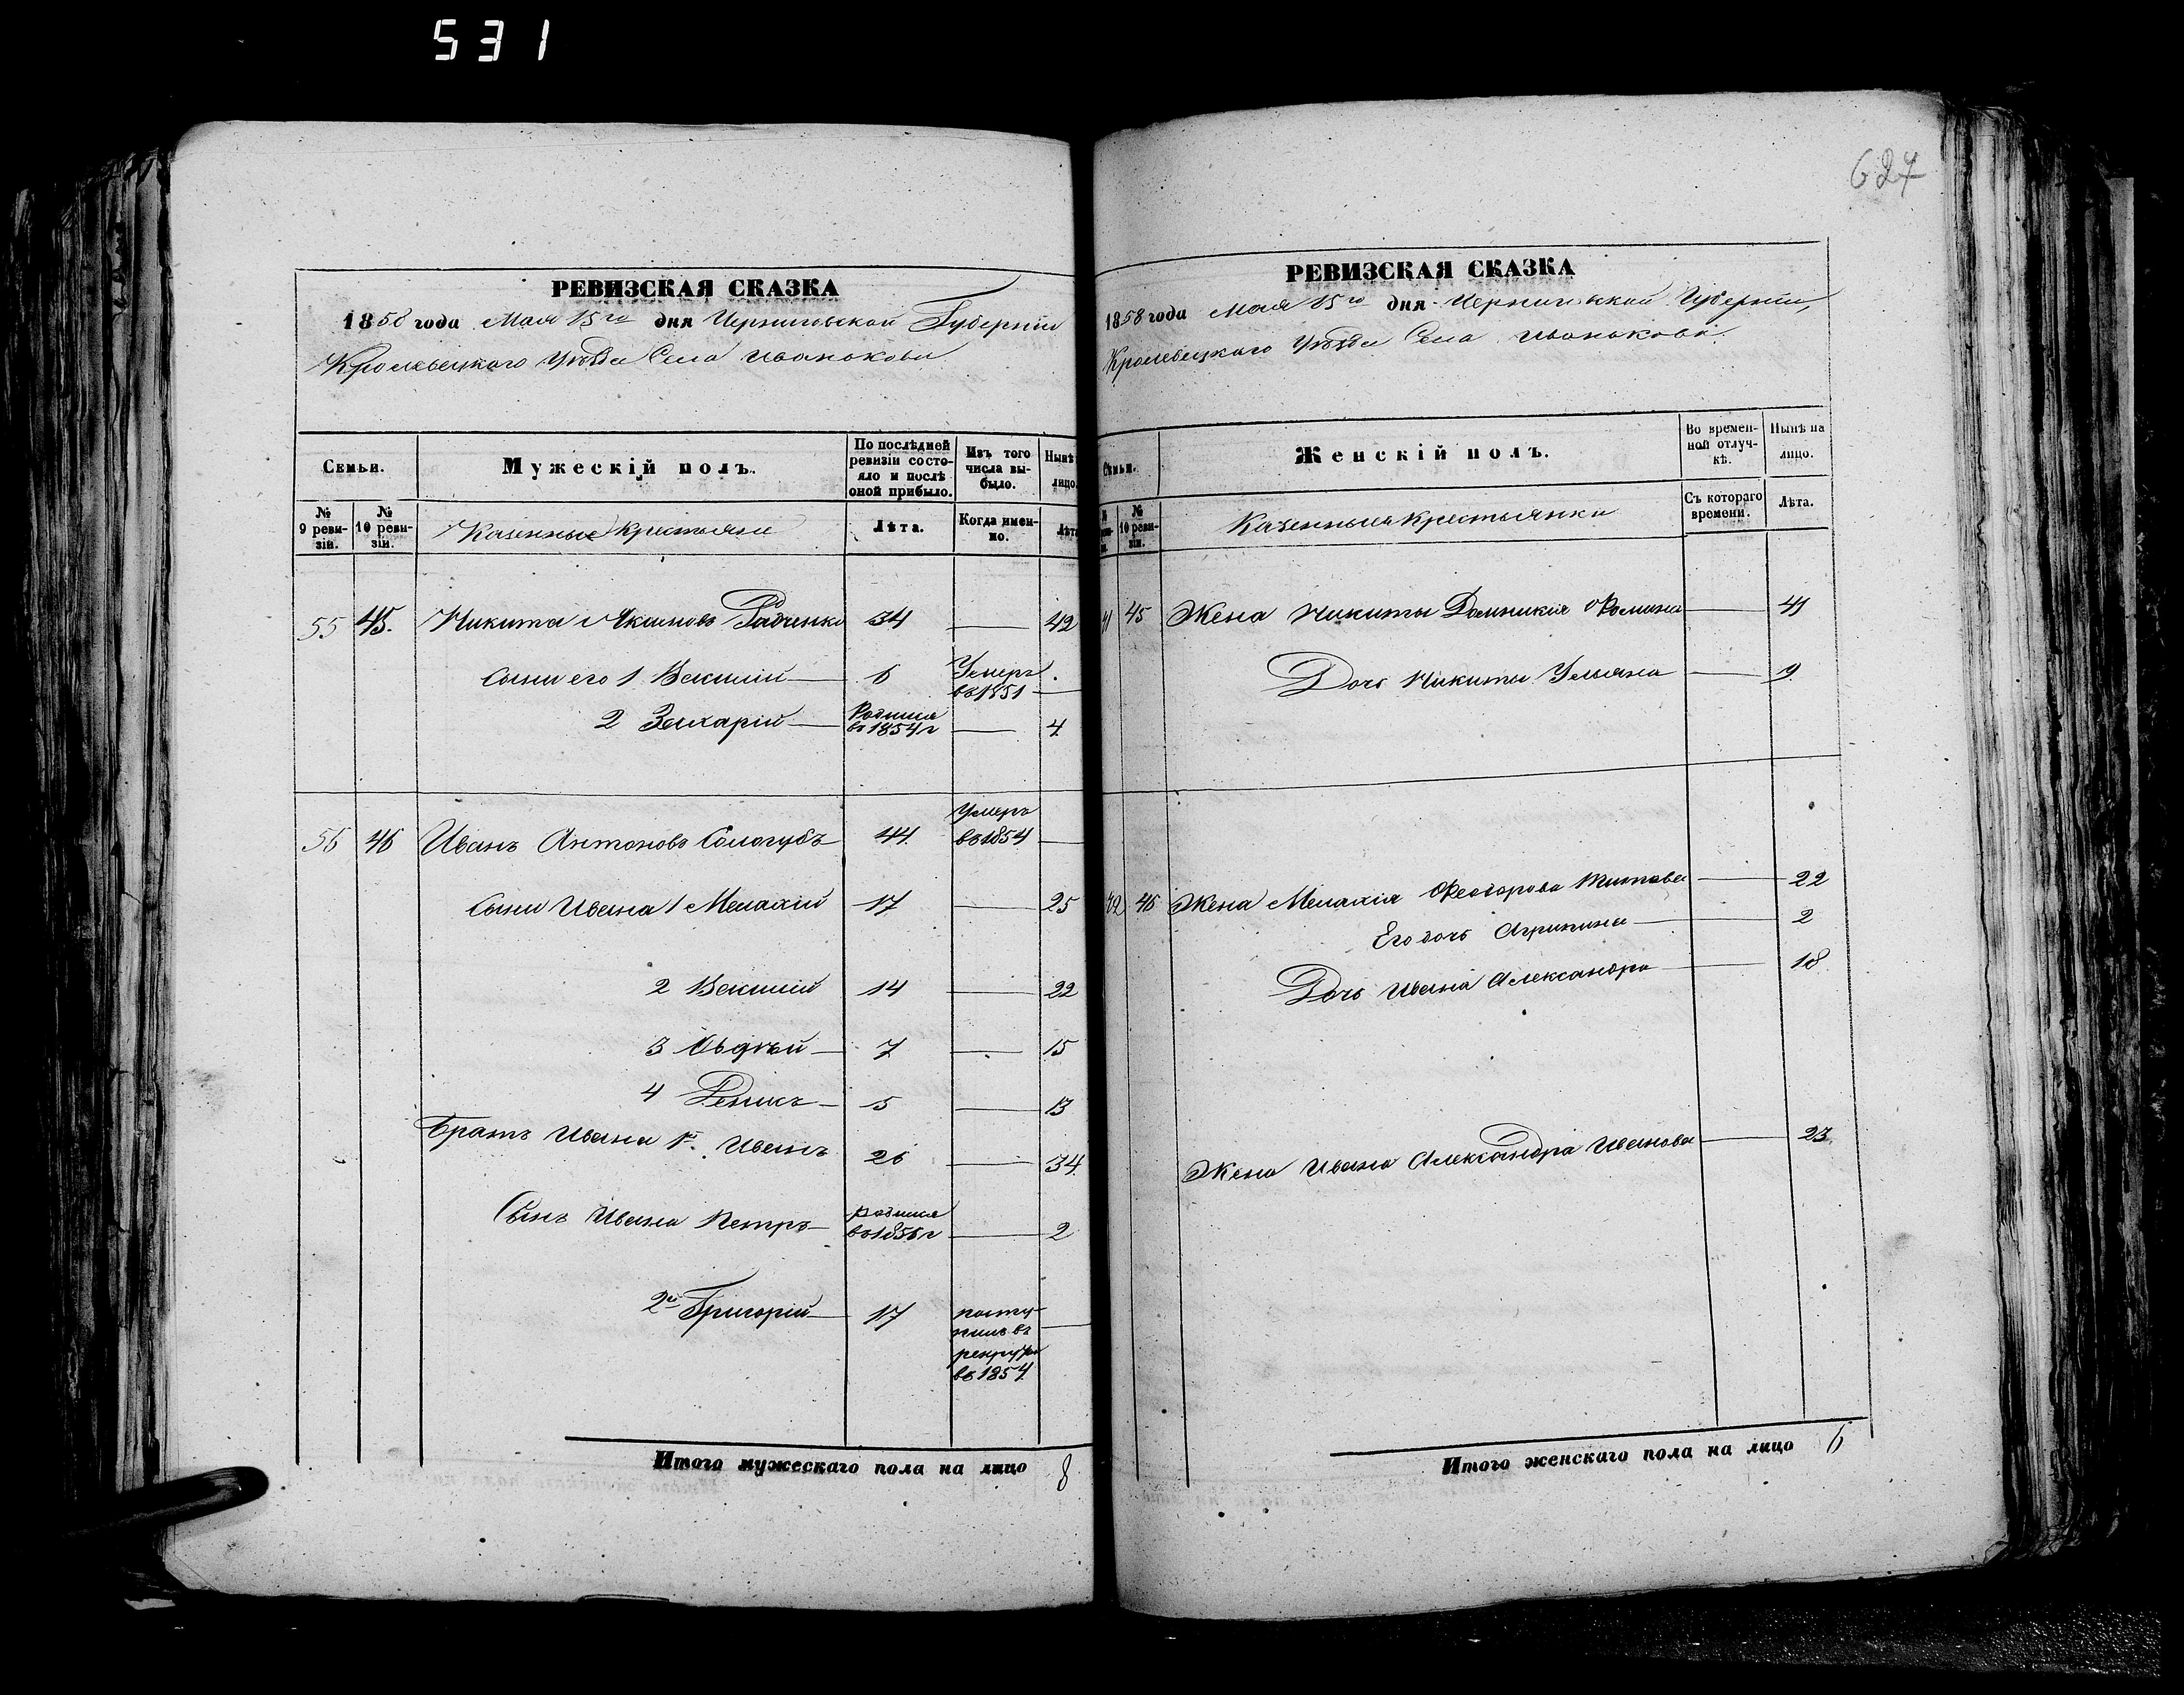 531
627
РЕВИЗСКАЯ СКАЗКА
1858 года Мая 15го дня Черниговской Губерніи
Кролевецкого Уѣзда Села Иванькова
Семьи.
Мужескій полъ.
По послѣдней ревизіи состояло и послѣ оной прибыло.
Изъ того числа выбыло.
Нынѣ лицо.
№ 9 ревизіи.
№ 10 ревизіи.
Казенные крестьяне
Лѣта.
Когда именно.
Лѣта
55 45. Никита Якимовъ Радченко 34 42
Сыни его 1 Василій 6 Умеръ въ 1851
2 Захарій Родился въ 1854 г 4
56 46 Иванъ Антоновъ Сологубъ 44 Умеръ въ 1854
Сыни Ивана 1 Малахій 17 25
2 Василій 14 22
3 7 15
4 5 13
Братъ Ивана 1й Иванъ 26 34
Сынъ Ивана Петръ родился въ 1856 г 2
2й Григорій 17 поступилъ въ рекруты въ 1854
Итого мужескаго пола на лицо 8
РЕВИЗСКАЯ СКАЗКА
1858 года Мая 15го дня Черниговской Губерніи,
Кролевецкаго Уѣзда Села Иванькова
Семьи.
Женскій полъ.
Во временной отлучкѣ.
Нынѣ на лицо.
№ 10 ревизіи.
Казенныя крестьянки
Съ котораго времени.
Лѣта.
41 45 Жена Никиты Домникия Фомина 41
Дочь Никиты Ульяна 9
42 46 Жена Малахія Феодорова 22
Его дочь Агрипина 2
Дочь Ивана Александра 18
Жена Ивана Александра Иванова 23
Итого женскаго пола на лицо 6